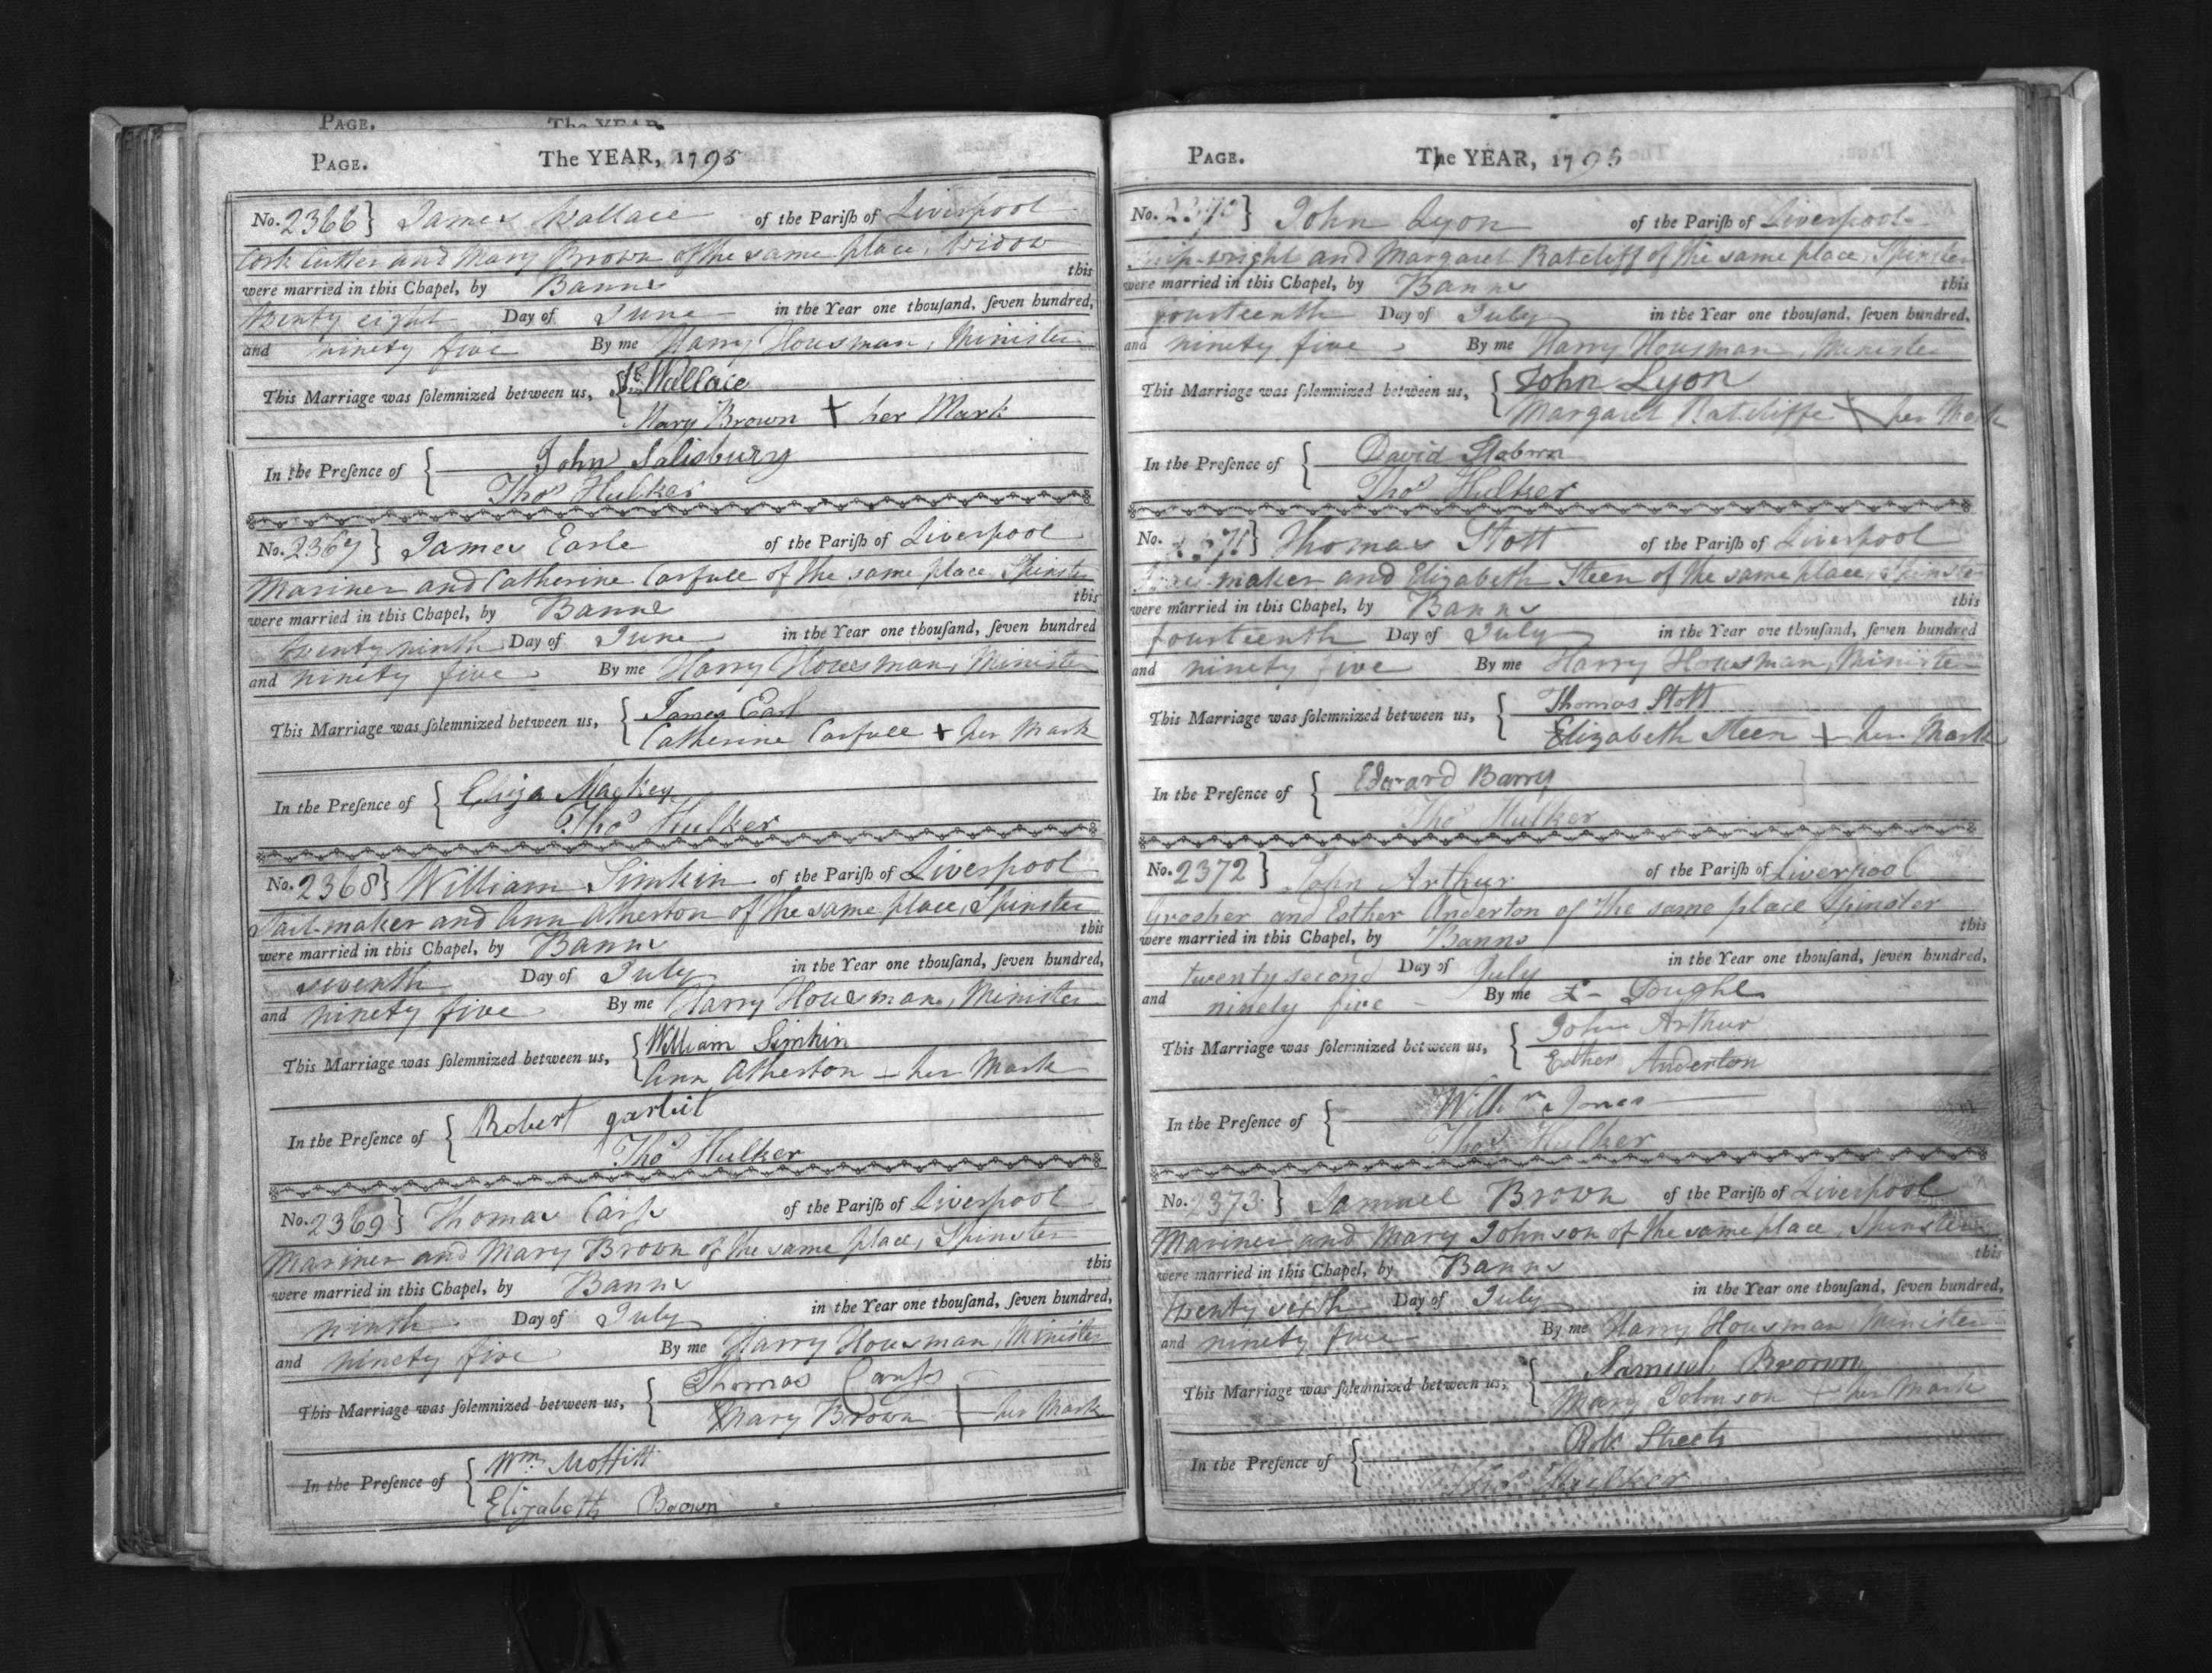 PAGE.
The YEAR,
PAGE. The YEAR, 1795
No. 2366 } James Wallace of the Pariſh of Liverpool
Cork Cutter and Mary Brown of the same place, Widow
were married in this Chapel, by Banns this
twenty eight Day of June in the Year one thouſand, ſeven hundred,
and ninety five By me Harry Housman, Minister
This Marriage was ſolemnized between us, { Wallace
Mary Brown + her Mark
In the Preſence of { John Salisbury
Thos Hulker
No. 2367 } James Earle of the Pariſh of Liverpool
Mariner and Catherine Corfull of the same place Spinster
were married in this Chapel, by Banns this
twenty ninth Day of June in the Year one thouſand, ſeven hundred
and ninety five By me Harry Housman, Minister
This Marriage was ſolemnized between us, { James Earl
Catherine Corfull + her Mark
In the Preſence of { Eliza Mackey
Thos Hulker
No. 2368 } William Simkin of the Pariſh of Liverpool
Sail-maker and Ann Atherton of the same place, Spinster
were married in this Chapel, by Banns this
seventh Day of July in the Year one thouſand, ſeven hundred,
and ninety five By me Harry Housman, Minister
This Marriage was ſolemnized between us, { William Simkin
Ann Atherton – her Mark
In the Preſence of { Robert
Thos Hulker
No. 2369 } Thomas of the Pariſh of Liverpool
Mariner and Mary Brown of the same place, Spinster
were married in this Chapel, by Banns this
ninth Day of July in the Year one thouſand, ſeven hundred,
and ninety five By me Harry Housman, Minister
This Marriage was ſolemnized between us, { Thomas
Mary Brown + her Mark
In the Preſence of { Wm Moffitt
Elizabeth Brown
PAGE. The YEAR, 1795
No. 2370 } John Lyon of the Pariſh of Liverpool
Ship-wright and Margaret Ratcliff of the same place, Spinster
were married in this Chapel, by Banns this
fourteenth Day of July in the Year one thouſand, ſeven hundred,
and ninety five By me Harry Housman, Minister
This Marriage was ſolemnized between us, { John Lyon
Margaret Ratcliffe + her Mark
In the Preſence of { David
Thos Hulker
No. 2371 } Thomas Stott of the Pariſh of Liverpool
maker and Elizabeth Steen of the same place, Spinster
were married in this Chapel, by Banns this
fourteenth Day of July in the Year one thouſand, ſeven hundred
and ninety five By me Harry Housman, Minister
This Marriage was ſolemnized between us, { Thomas Stott
Elizabeth Steen + her Mark
In the Preſence of { Edward Barry
Thos Hulker
No. 2372 } John Arthur of the Pariſh of Liverpool
and Esther Anderton of the same place Spinster
were married in this Chapel, by Banns this
twenty second Day of July in the Year one thouſand, ſeven hundred,
and ninety five By me
This Marriage was ſolemnized between us, { John Arthur
Esther Anderton
In the Preſence of { Willm Jones
Thos Hulker
No. 2373 } Samuel Brown of the Pariſh of Liverpool
Mariner and Mary Johnson of the same place, Spinster
were married in this Chapel, by Banns this
twenty sixth Day of July in the Year one thouſand, ſeven hundred,
and ninety five By me Harry Housman Minister
This Marriage was ſolemnized between us, { Samuel Brown
Mary Johnson + her Mark
In the Preſence of { Robt Streets
Thos Hulker